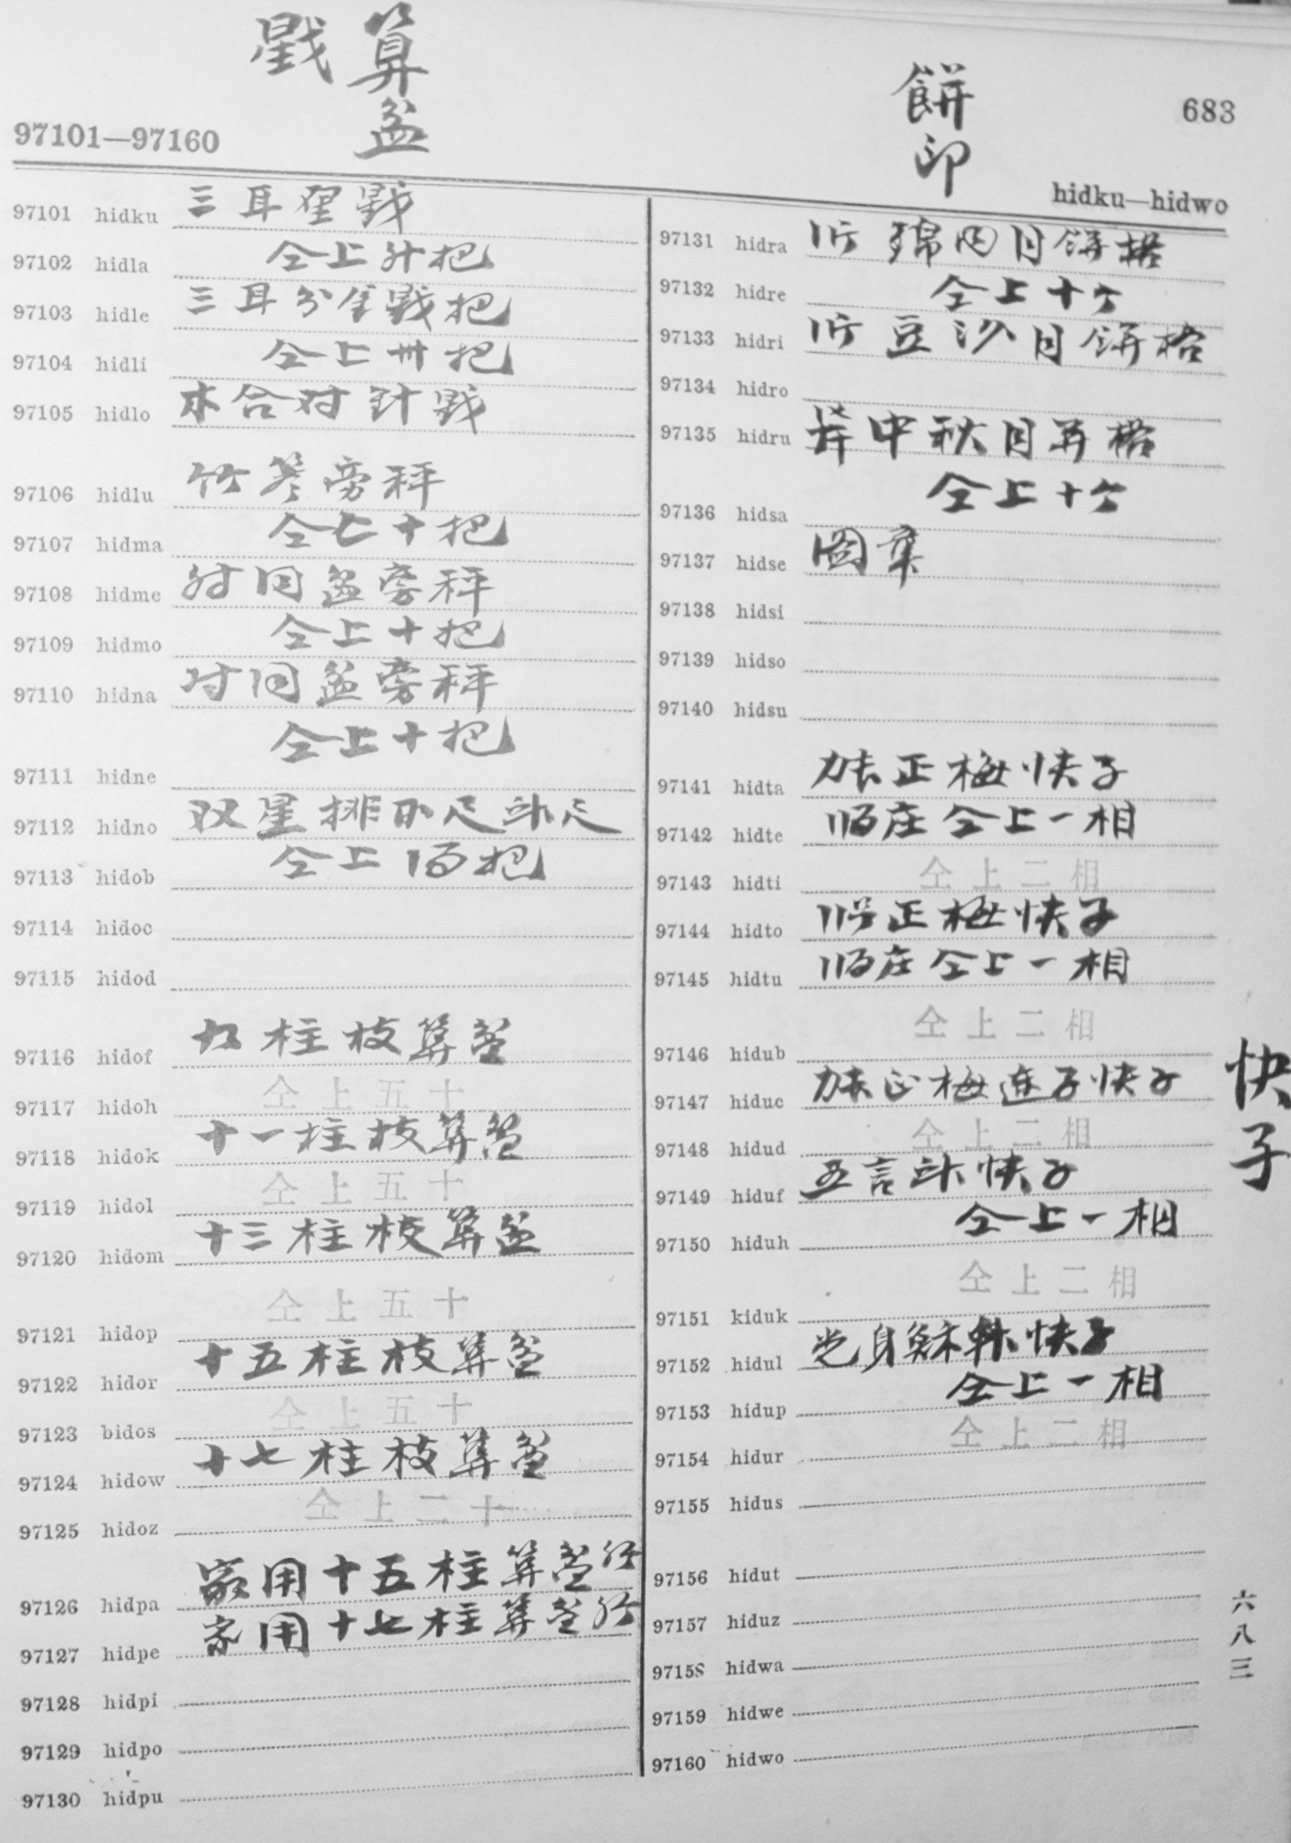 算盆
餅印
683
97101—97160
hidku—hidwo
97101 hidku 三耳
97102 hidla 仝上卅把
97103 hidle 三耳
97104 hidli 仝上卌把
97105 hidlo 木合对針
97106 hidlu 竹
97107 hidma 仝七十把
97108 hidme 对同盆旁秤
97109 hidmo 仝上十把
97110 hidna 对同盆旁秤
97111 hidne 仝上十把
97112 hidno 双星排
97113 hidob 仝上 把
97114 hidoc
97115 hidod
97116 hidof 九柱枝算盆
97117 hidoh 仝上五十
97118 hidok 十一柱枝算盆
97119 hidol 仝上五十
97120 hidom 十三柱枝算盆
97121 hidop 仝上五十
97122 hidor 十五柱枝算盆
97123 bidos 仝上五十
97124 hidow 十七柱枝算盆
97125 hidoz 仝上二十
97126 hidpa 家用十五柱算盆
97127 hidpe 家用十七柱算盆
97128 hidpi
97129 hidpo
97130 hidpu
97131 hidra 月餅格
97132 hidre 仝上十个
97133 hidri 豆沙月餅格
97134 hidro
97135 hidru 中秋月并格
97136 hidsa 仝上十个
97137 hidse 图章
97138 hidsi
97139 hidso
97140 hidsu
97141 hidta 正梅快子
97142 hidte 庄仝上一相
97143 hidti 仝上二相
97144 hidto 正梅快子
97145 hidtu 庄仝上一相
97146 hidub 仝上二相
97147 hiduc 正梅连子快子
97148 hidud 仝上二相
97149 hiduf 五言 快子
97150 hiduh 仝上一相
97151 kiduk 仝上二相
97152 hidul 光身 快子
97153 hidup 仝上一相
97154 hidur 仝上二相
97155 hidus
97156 hidut
97157 hiduz
97158 hidwa
97159 hidwe
97160 hidwo
快子
六八三